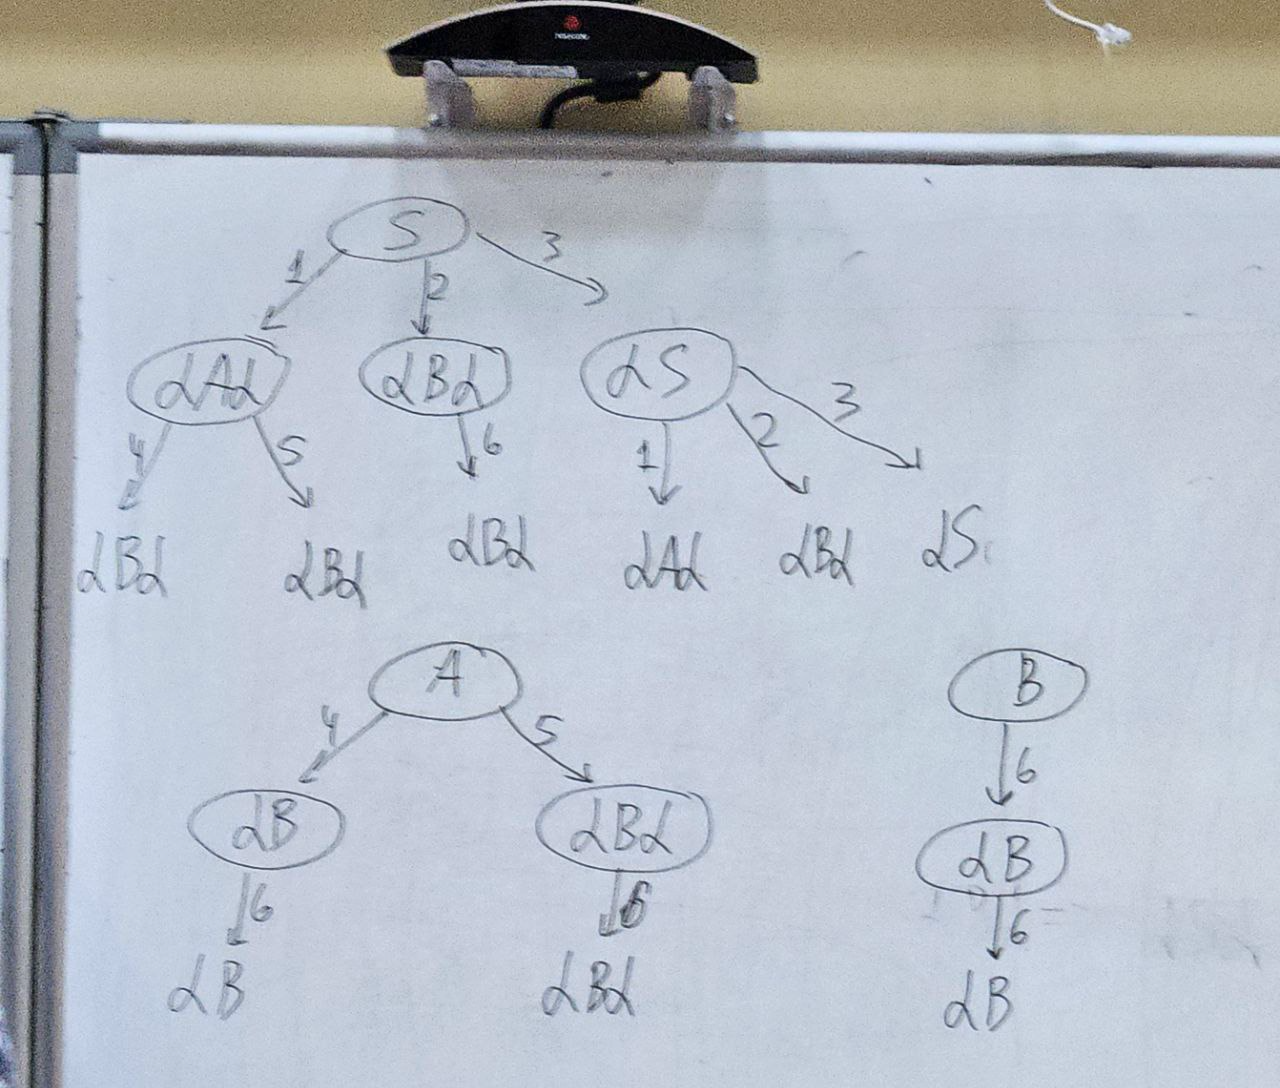 S
1 2 3
αAα αBα αS
4 5 6 1 2 3
αBα αBα αBα αAα αBα αS
A B
4 5 6
αB αBα αB
6 6 6
αB αBα αB